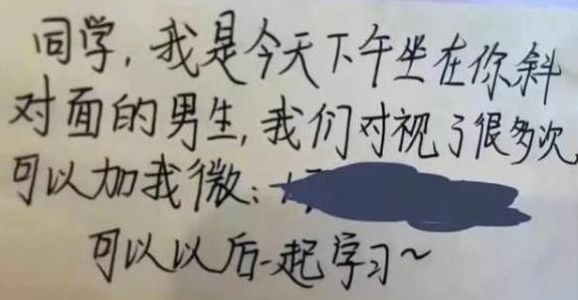 同学,我是今天下午坐在你斜
对面的男生,我们对视了很多次,
可以加我微:
可以以后一起学习~